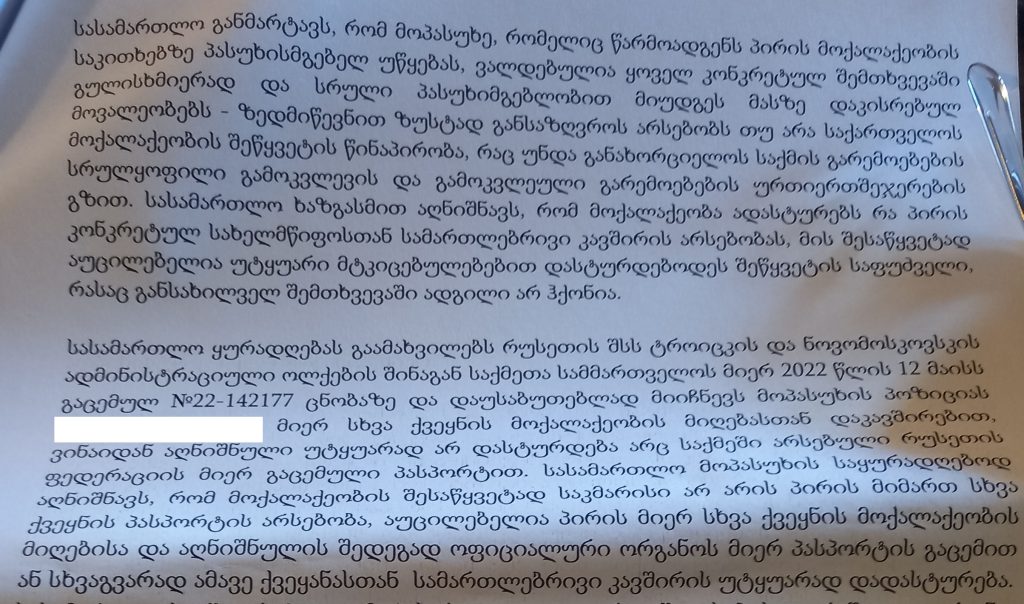 სასამართლო განმარტავს, რომ მოპასუხე, რომელიც წარმოადგენს პირის მოქალაქეობის
საკითხებზე პასუხისმგებელ უწყებას, ვალდებულია ყოველ კონკრეტულ შემთხვევაში
გულისხმიერად და სრული პასუხიმგებლობით მიუდგეს მასზე დაკისრებულ
მოვალეობებს - ზედმიწევნით ზუსტად განსაზღვროს არსებობს თუ არა საქართველოს
მოქალაქეობის შეწყვეტის წინაპირობა, რაც უნდა განახორციელოს საქმის გარემოებების
სრულყოფილი გამოკვლევის და გამოკვლეული გარემოებების ურთიერთშეჯერების
გზით. სასამართლო ხაზგასმით აღნიშნავს, რომ მოქალაქეობა ადასტურებს რა პირის
კონკრეტულ სახელმწიფოსთან სამართლებრივი კავშირის არსებობას, მის შესაწყვეტად
აუცილებელია უტყუარი მტკიცებულებებით დასტურდებოდეს შეწყვეტის საფუძველი,
რასაც განსახილველ შემთხვევაში ადგილი არ ჰქონია.
სასამართლო ყურადღებას გაამახვილებს რუსეთის შსს ტროიცკის და ნოვომოსკოვსკის
ადმინისტრაციული ოლქების შინაგან საქმეთა სამმართველოს მიერ 2022 წლის 12 მაისს
გაცემულ №22-142177 ცნობაზე და დაუსაბუთებლად მიიჩნევს მოპასუხის პოზიციას
მიერ სხვა ქვეყნის მოქალაქეობის მიღებასთან დაკავშირებით,
ვინაიდან აღნიშნული უტყუარად არ დასტურდება არც საქმეში არსებული რუსეთის
ფედერაციის მიერ გაცემული პასპორტით. სასამართლო მოპასუხის საყურადღებოდ
აღნიშნავს, რომ მოქალაქეობის შესაწყვეტად საკმარისი არ არის პირის მიმართ სხვა
ქვეყნის პასპორტის არსებობა, აუცილებელია პირის მიერ სხვა ქვეყნის მოქალაქეობის
მიღებისა და აღნიშნულის შედეგად ოფიციალური ორგანოს მიერ პასპორტის გაცემით
ან სხვაგვარად ამავე ქვეყანასთან სამართლებრივი კავშირის უტყუარად დადასტურება.